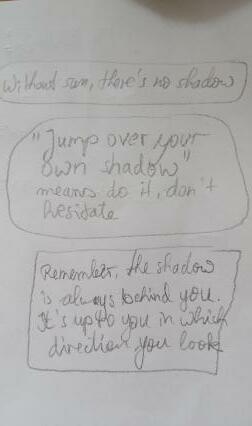 Without sun, there's no shadow
"Jump over your
own shadow"
means do it, don't
hesitate
Remember, the shadow
is always behind you.
It's up to you in which
direction you look